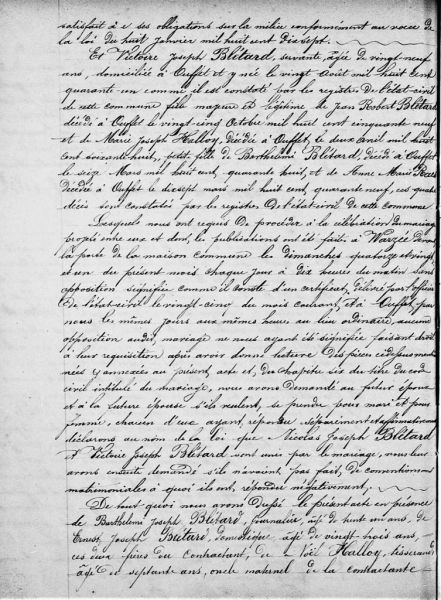 satisfait à ses obligations sur la milice conformément au voeu de
la loi du huit Janvier mil huit cent dixsept.
Et Victoire Joseph Blétard, servante, âgée de vingt-neuf
ans, domiciliée à Ouffet et y née le vingt Août mil huit cent
quarante un comme il est constaté par les registres de l'état-civil
de cette commune fille majeure et légitime de Jean Robert Blétard
décédé à Ouffet le vingt-cinq Octobre mil huit cent cinquante neuf
et de Marie Joseph Halloy, décédée à Ouffet, le deux avril mil huit
cent soixante huit, petite fille de Barthelémi Blétard, décédé à Ouffet
le seize Mars mil huit cent, quarante huit, et de Anne Marie
décédée à Ouffet le dixsept mars mil huit cent, quarante neuf, ces quatre
décès sont constatés par les registres de l'état-civil de cette commune
Lesquels nous ont requis de procéder à la célébration du mariage
projeté entre eux et dont les publications ont été faites à Warzée devant
la porte de la maison commune les dimanches quatorze et vingt
et un du présent mois chaque jour à dix heures du matin sans
opposition signifiée comme il conste d'un certificat, délivré par l'officier
de l'état-civil le vingt-cinq du mois courant, et à Ouffet, par
nous les mêmes jours aux mêmes heures au lieu ordinaire, aucune
opposition audit mariage ne nous ayant été signifiée faisant droit
à leur requisition après avoir donné lecture des pièces ci dessus mention
nées y annexées au présent, acte et, du chapitre six du titre du code
civil intitulé du Mariage, nous avons demandé au futur époux
et à la future épouse s'ils veulent, se prendre pour mari et pour
femme, chacun d'eux ayant, répondu séparément et affirmativement
déclarons au nom de la loi que Nicolas Joseph Blétard
& Victoire Joseph Blétard sont unis par le mariage, nous leur
avons ensuite demandé s'ils n'avaient pas fait, de conventions
matrimoniales à quoi ils ont, répondu négativement,
De tout quoi nous avons dressé le présent acte en présence
de Barthelémi Joseph Blétard, journalier, âgé de huit ans, de
Ernest Joseph Blétard, domestique âgé de vingt-trois ans,
ces deux frères du contractant, de Noël Halloy, tisserand
âgé de septante ans, oncle maternel de la contractante